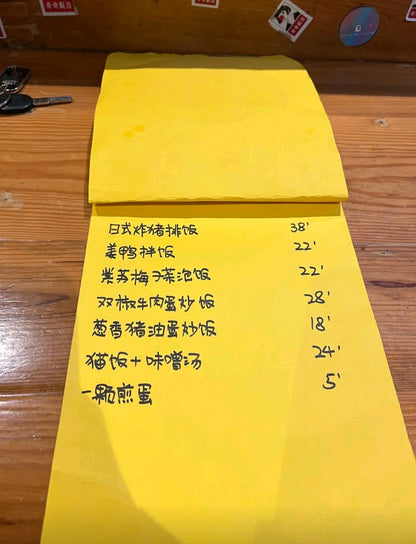 日式炸猪排饭 38'
姜鸭拌饭 22'
紫苏梅子茶泡饭 22'
双椒牛肉蛋炒饭 28'
葱香猪油蛋炒饭 18'
猫饭+味噌汤 24'
一颗煎蛋 5'